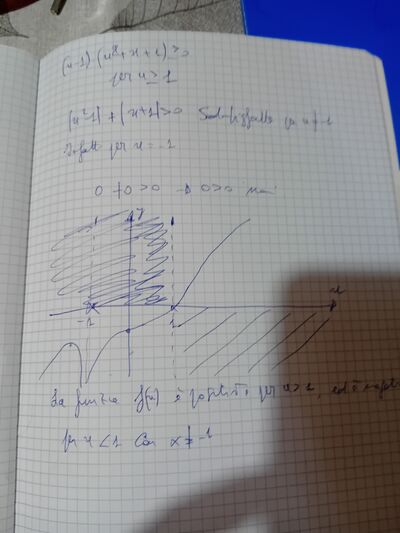 (x-1)(x²+x+1)≥0
per x≥1
|x²-1|+|x+1|>0 Soddisfatta per x≠-1
Infatti per x=-1
0+0>0 → 0>0 mai
y
x
-1
1
La funzione f(x) è positiva per x>1, ed è
per x<1 con x≠-1